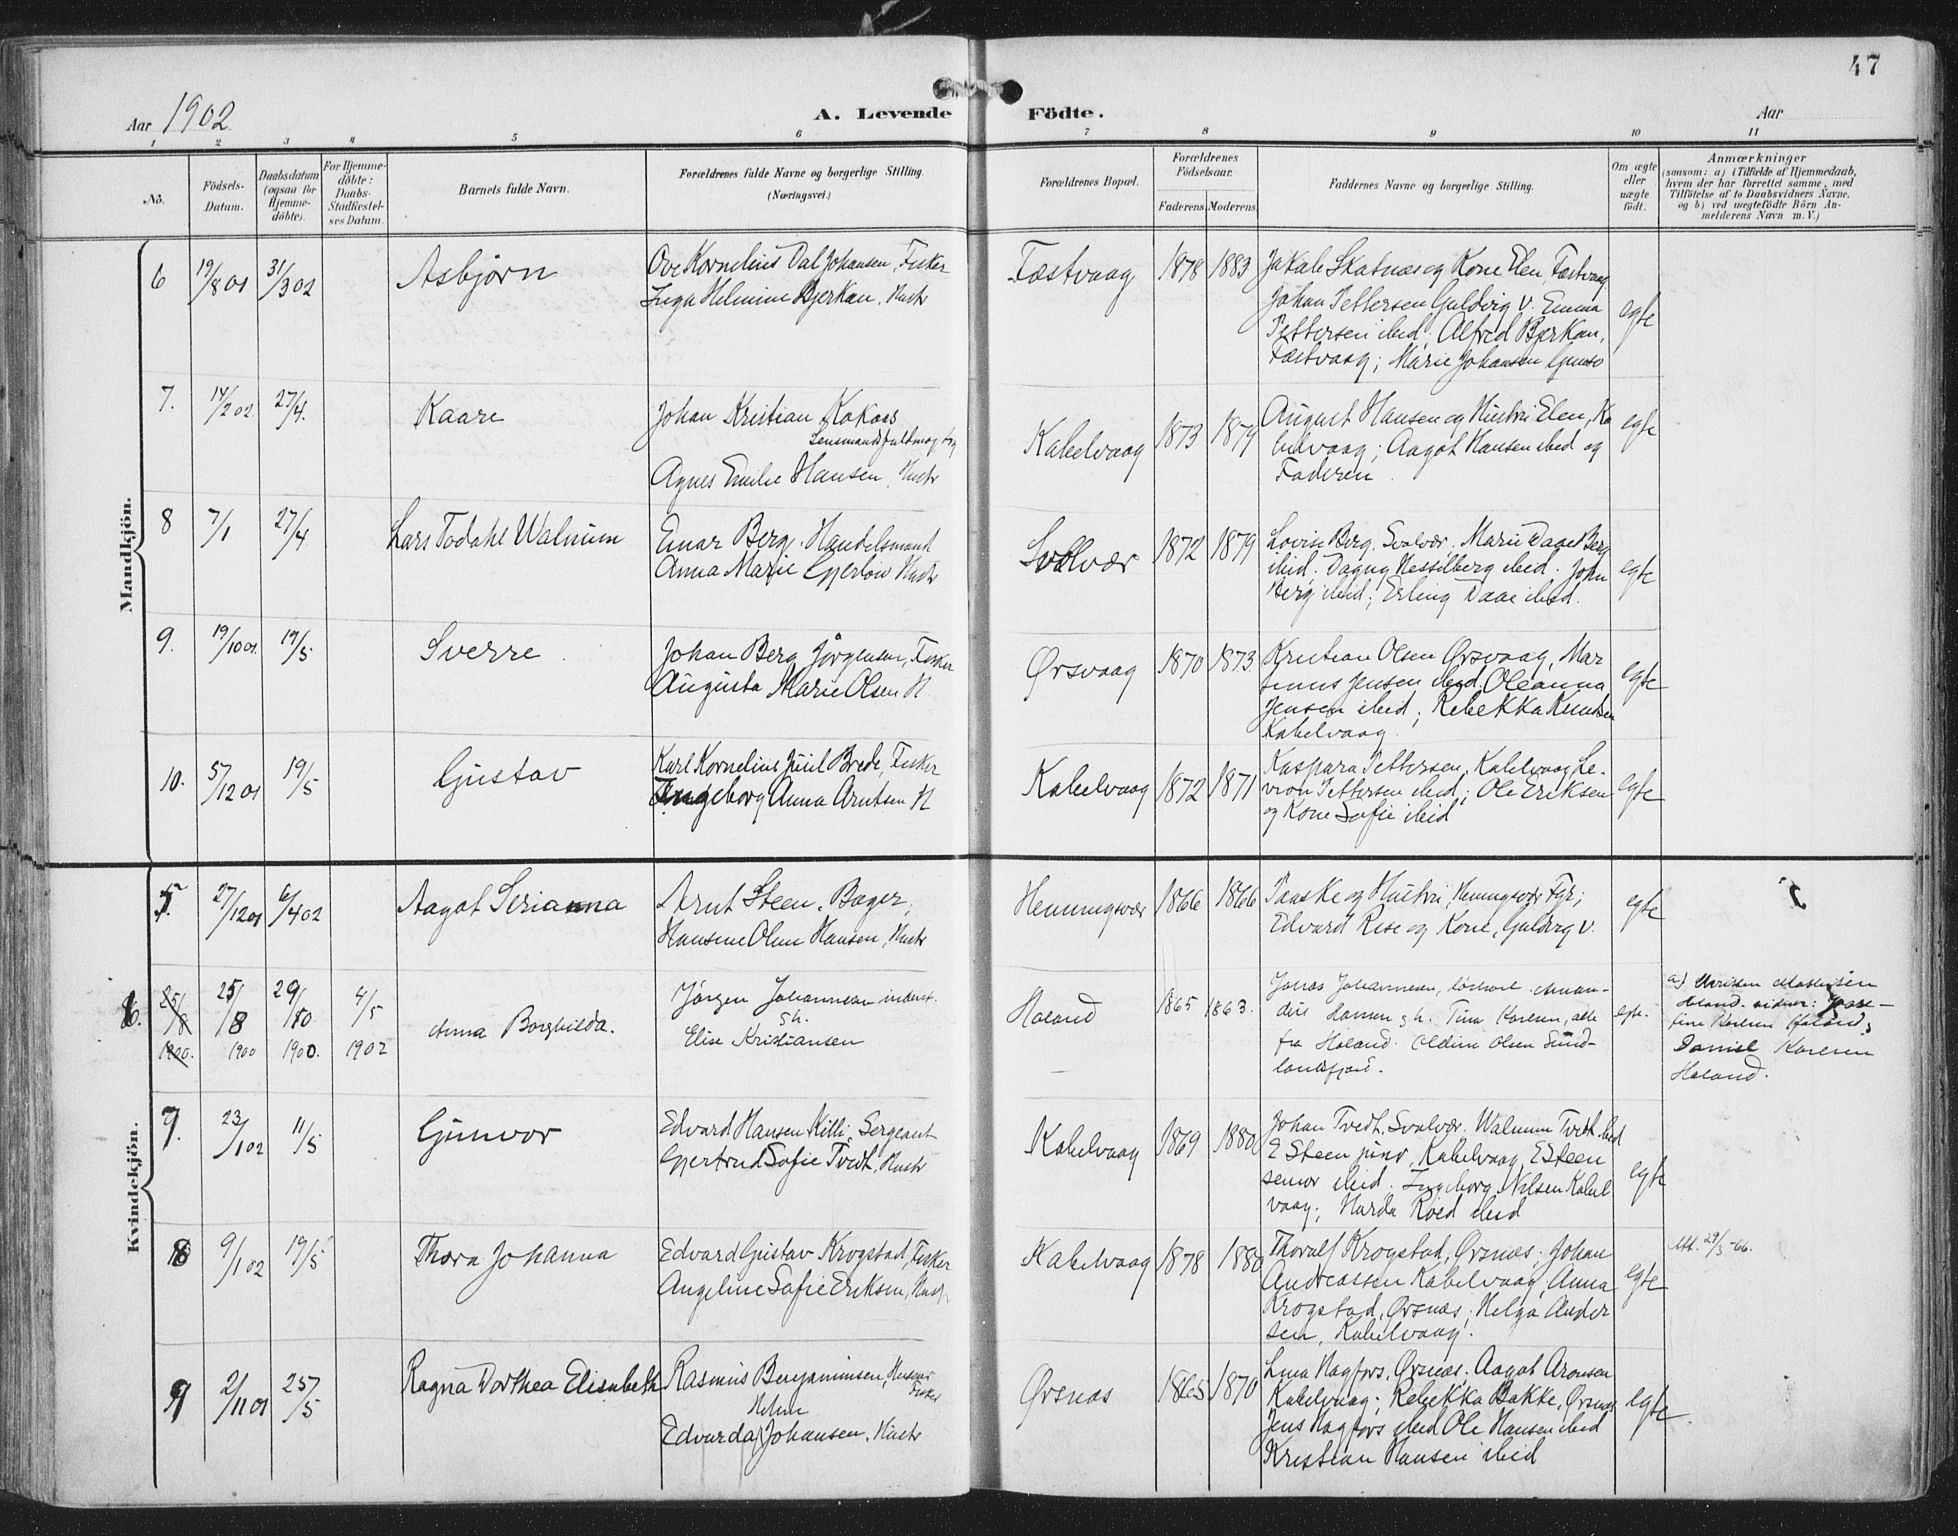 47
Aar 1902.
A. Levende Födte.
Aar
1 2 3 4 5 6 7 8 9 10 11
No.
Födsels-Datum.
Daabsdatum (ogsaa for Hjemme-döbte).
For Hjemme-döbte: Daabs-Stadfæstel-ses Datum.
Barnets fulde Navn.
Forældrenes fulde Navne og borgerlige Stilling.
(Næringsvei.)
Forældrenes Bopæl.
Forældrenes Födselsaar.
Faderens. Moderens.
Faddernes Navne og borgerlige Stilling.
Om ægte eller uægte födt.
Anmærkninger
(saasom: a) i Tilfælde af Hjemmedaab,
hvem der har forrettet samme, med
Tilföielse af to Daabsvidners Navne.
og b) ved uægtefödte Börn An-
melderens Navn m. V.)
Mandkjön.
6 19/8 01 31/3 02 Asbjörn
Ove Kornelius Dal Johansen, Fisker
Inga Helmine Bjerkan, Hustr
Fæstvaag 1878 1883
Jakob Skatnæs og Kone Elen, Fæstvaag
Johan Pettersen Guldvig v. Emma
Pettersen ibid; Alfred Bjerkan,
Fæstvaag; Marie Johansen
egte
7. 14/2 02 27/4. Kaare
Johan Kristian
Lensmandsfuldmægtig
Agnes Emilie Hansen, Hustr
Kabelvaag 1873 1879
August Hansen og Hustru Elen, Ka
belvaag; Aagot Hansen ibid og
Faderen.
egte
8 7/1 27/4 Lars Todahl Walnum
Einar Berg, Handelsmand
Anna Marie Gjerløw Hustr
Svolvær 1872 1879
Lovise Berg, Svolvær; Marie Daae Berg
ibid; Dagny Hesselberg ibid. John
Berg ibid; Erling Daae ibid.
egte
9. 19/10 01. 19/5 Sverre
Johan Berg Jörgensen, Fisker
Augusta Marie Olsen H.
Ørsvaag 1870 1873
Kristian Olsen Ørsvaag, Mar
tinus Jensen ibid, Oleanna
Jensen ibid; Rebekka Knutsen
Kabelvaag.
egte
10. 5/12 01 19/5 Gustav
Karl Kornelius Juul Brede, Fisker
Ingeborg Anna Arntsen H
Kabelvaag 1872 1871
Kaspara Pettersen, Kabelvaag Le-
vion Pettersen ibid; Ole Eriksen
og Kone Sofie ibid
egte
Kvindekjön.
5. 27/12 01 6/4 02 Aagot Serianna
Arnt Steen, Bager;
Hansine Oline Hansen, Hustr
Henningsvær 1866 1866
Paaske og Hustru, Henningsvær Fyr;
Edvard Rise og Kone, Guldvig v.
egte
6. 25/8 1900. 25/8 1900 29/10 1900. 4/5 1902 Anna Borghilda.
Jörgen Johannesen inderst.
gh.
Elise Kristiansen
Holand 1865 1863.
Jonas Johannesen, lösk Aman-
da Hansen gh. Tina Karlsen, alle
fra Holand. Aldina Olsen Sund-
landsfjord.
egte.
Holand.
Daniel Karlsen
Holand.
7. 23/1 02 11/5 Gunvor
Edvard Hansen Killi, Sergeant
Gjertrud Sofie Tvedt, Hustr
Kabelvaag 1869 1880
Johan Tvedt, Svolvær. Walnum Tvedt ibid
E Steen junr, Kabelvaag, E Steen
senior ibid. Ingeborg Nilsen Kabel
vaag; Harda Röed ibid
egte
8 9/1 02 19/5 Thora Johanna
Edvard Gustav Krogstad, Fisker
Angeline Sofie Eriksen, Hustr
Kabelvaag 1878 1880
Thoralf Krogstad, Ørsnæs; Johan
Andreassen Kabelvaag; Anna
Krogstad, Ørsnæs; Helga Ander
sen, Kabelvaag.
egte
Att. 29/3-66.
9 2/11 01 25/5 Ragna Dorthea Elisabeth
Rasmus Benjaminsen, Husmr
Fisker
Helene
Edvarda Johansen, Hustr
Ørsnæs 1865 1870
Lina Hagfors, Ørsnæs. Aagot Aronsen
Kabelvaag; Rebekka Bakke, Ørsnæs
Jens Hagfors ibid Ole Hansen ibid
Kristian Hansen ibid
egte.